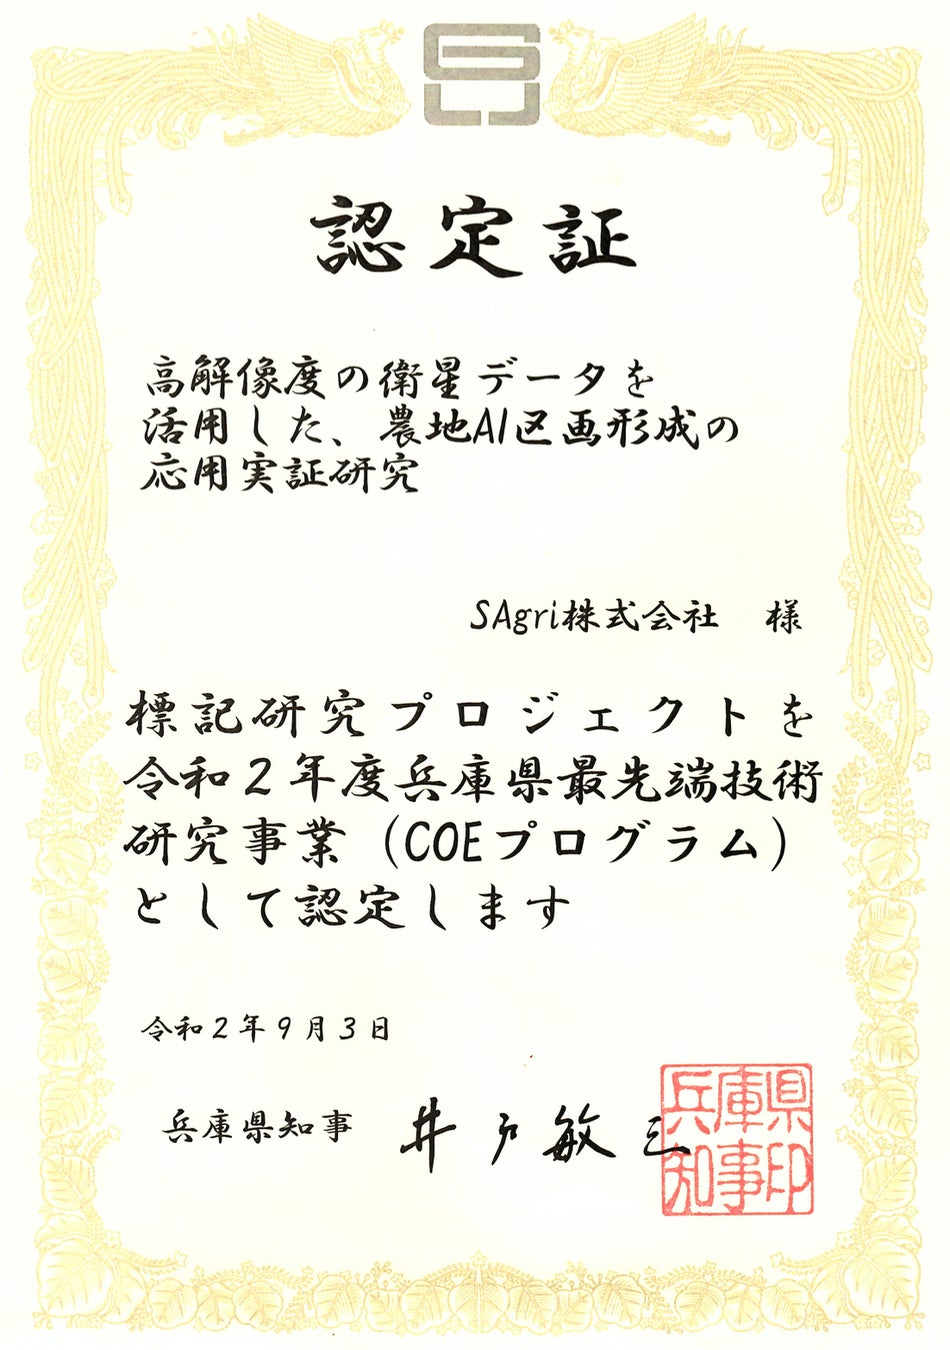 認定証
高解像度の衛星データを
活用した、農地AI区画形成の
応用実証研究
SAgri株式会社　様
標記研究プロジェクトを
令和2年度兵庫県最先端技術
研究事業（COEプログラム）
として認定します
令和2年9月3日
兵庫県知事　井戸敏三
兵庫県
知事印